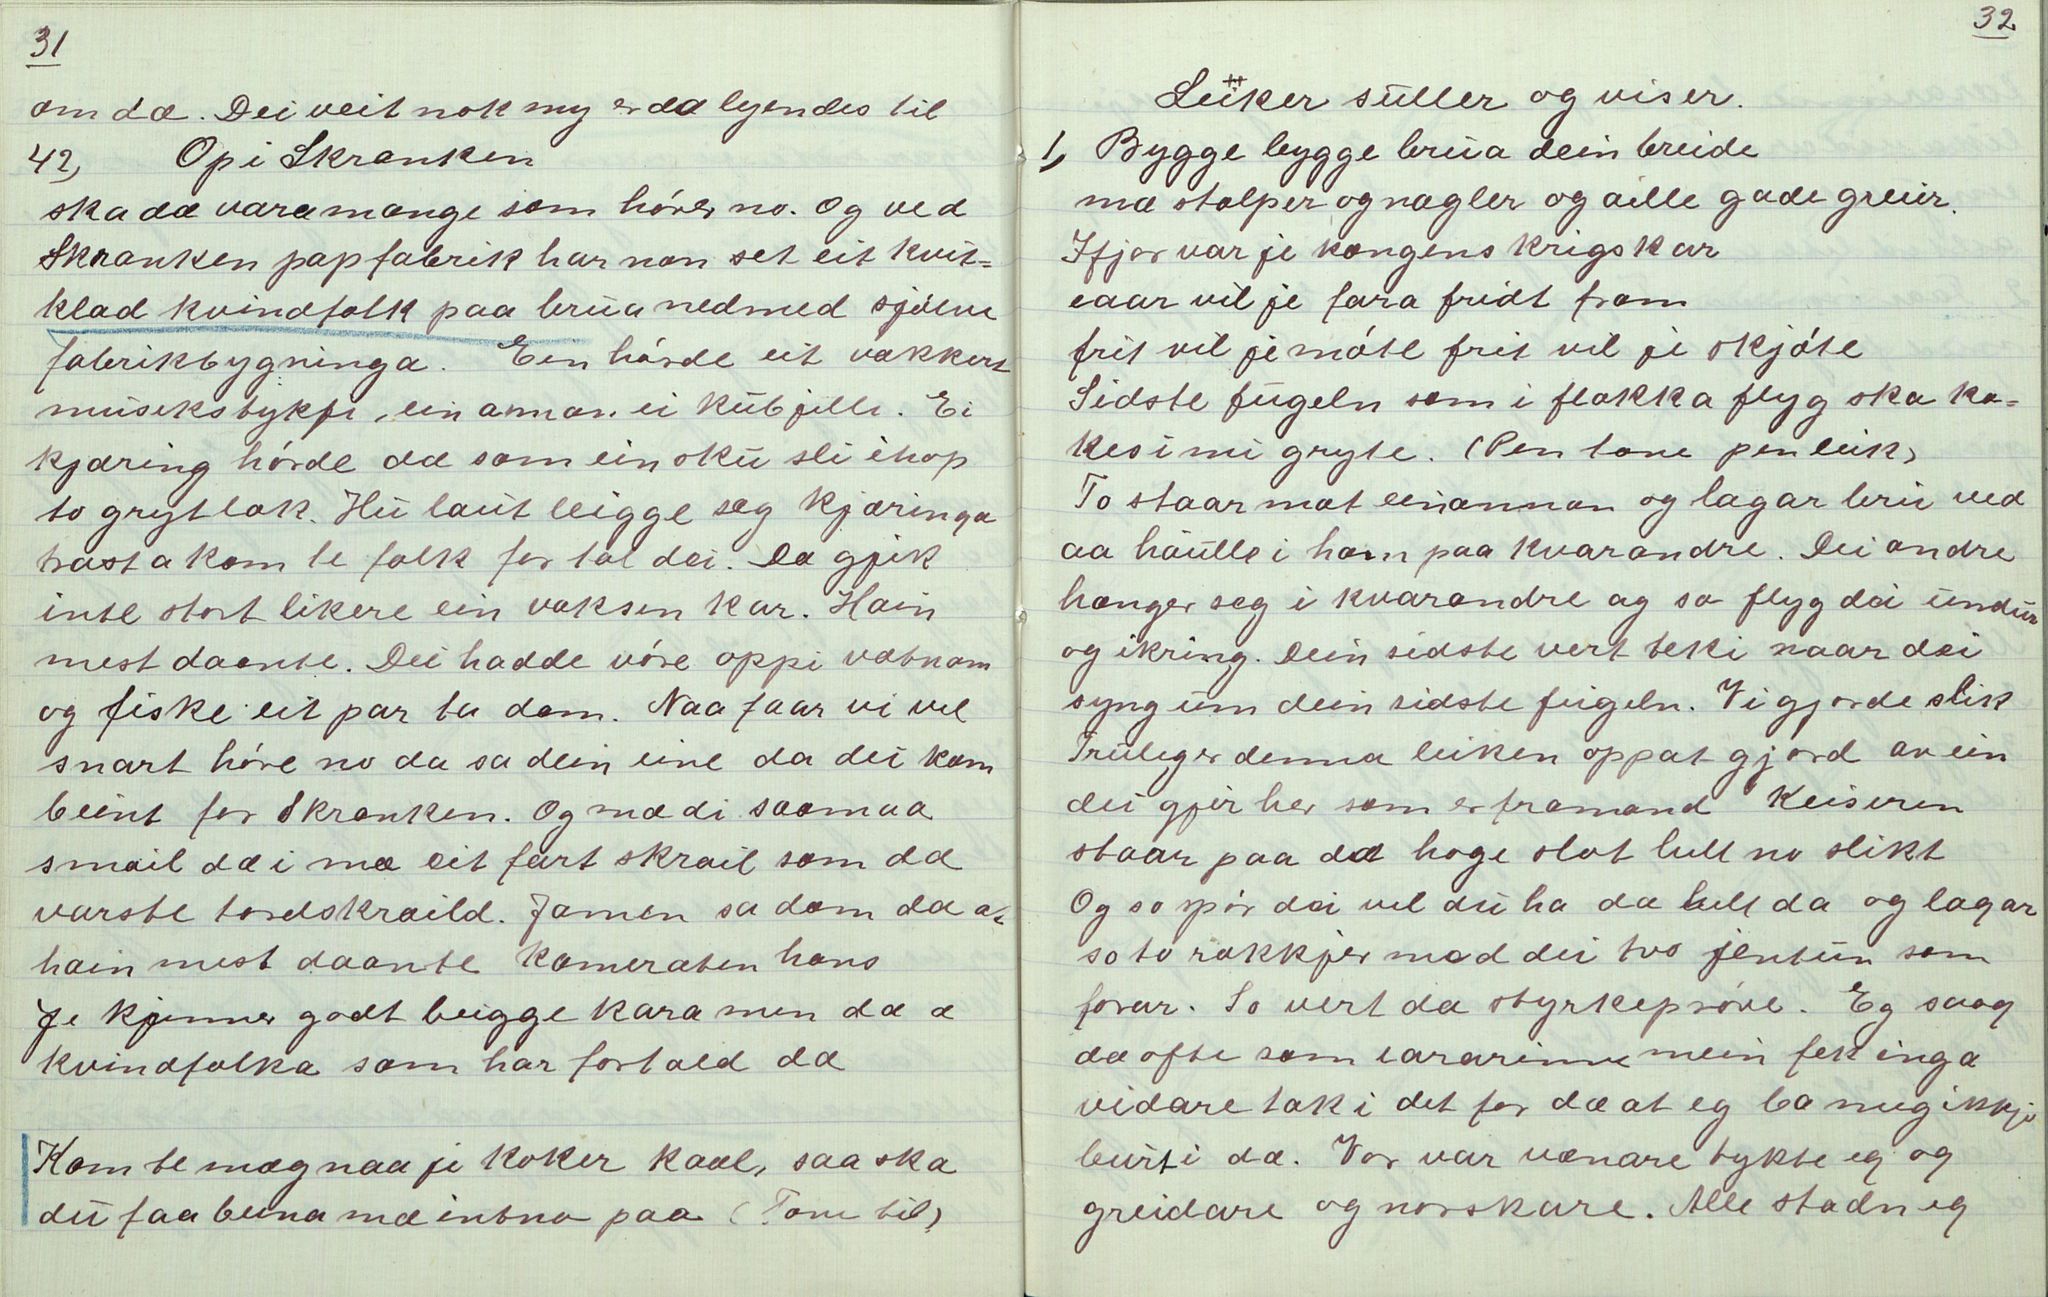 31
om dæ. Dei veit nok my er dæ lyendes til
42, Op i Skranken
ska dæ vara mange som hóres no. Og ved
Skranken papfabrik har non set eit kvit=
klad kvindfolk paa brua nedmed sjólve
fabrikbygninga. Ein hórde eit vakkert
museksbykje, ein annan ei kubjelle. Ei
kjæring hórde dæ som ein sku sli ihop
to grytlok. Hu laut leigge seg kjæringa
trast a kom te folk for tel dei. Da gjik
inte stort likere ein voksen kar. Hain
mest daante. Dei hadde vóre oppi vatnom
og fiske eit par ta dom. Naa faar vi vel
snart hóre no da sa dein eine da dei kom
beint for Skranken. Og mæ di saamaa
smail dæ i mæ eit fært skrail som dæ
varste tordskraild. Jamen sa dom dæ a,
hain mest daante kameraten hans
Je kjenner godt beigge kara men dæ æ
kvindfolka som har fortæld dæ
Kom te mæg naa je koker kaal, saa ska
du faa beina mæ intno paa (Tone til)
32
Leiker suller og viser.
1, Bygge bygge brua dein breide
mæ stolper og nagler og aille gode greier.
Ifjor var je kongens krigskar
eaar vil je fara fridt fram
frit vil je móte frit vil je skjóte
Sidste fugeln som i flokka flyg ska ko=
kes i mi gryte. (Pen tone pen leik)
To staar mot einannan og lagar bru ved
aa haulle i hain paa kvarandre. Dei andre
hænger seg i kvarandre og so flyg dei undur
og ikring. Dein sidste vert teki naar dei
syng um dein sidste fugeln. Vi gjorde slik
Truleg er denna leiken oppat gjord av ein
dei gjer her som er framand Keiseren
staar paa dæ hoge slot hell no slikt
Og so spór dei vel du ha dæ hell dæ og lagar
so to rækkjer mæd dei tvo jentun som
forar. So vert dæ styrkeprove. Eg saag
dæ ofte som lærarinne mein fekk inga
vidare tak i det for dæ at eg ba meg ikkje
burt i dæ. Vor var vænare tykte eg og
greidare og norskare. Alle stadn eg